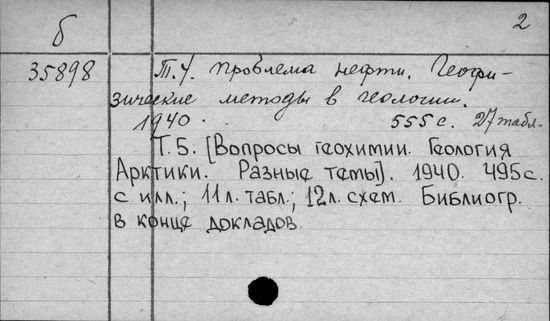 б
2
35898
Т.4. Проблема нефти. Геофи-
зические методы в геологии.
1940. 555 с. 27 табл.
Т.5. [Вопросы геохимии. Геология
Арктики. Разные темы]. 1940. 495 с.
с илл.; 11 л. табл.; 12 л. схем. Библиогр.
в конце докладов.